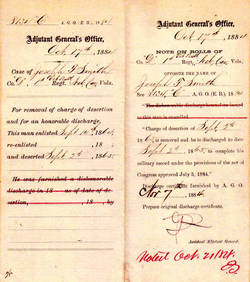 Adjutant General's Office,
Oct 17th 1884
Case of Joseph F. Smith
Co. D. 1st Regt. Vols.
For removal of charge of desertion
and for an honorable discharge.
This man enlisted Sept 1864,
re-enlisted 18
and deserted Sept 2d, 1865.
He was furnished a dishonorable
discharge in 18 as of date of de-
sertion, 18
Adjutant General's Office,
Oct 17th 1884
NOTE ON ROLLS OF
Co. D. 1st Regt. Vols.
OPPOSITE THE NAME OF
Joseph F. Smith
See C A G O (E. B.) 1884
Charge of desertion of Sept 2d
1865 is removed and he is discharged to date
Sept 2d, 1865, to complete his
military record under the provisions of the act of
Congress approved July 5, 1884.
Discharge certificate furnished by A. G. O.
Nov 7, 1884
Prepare original discharge certificate.
Assistant Adjutant General.
Noted Oct. 21 1884.